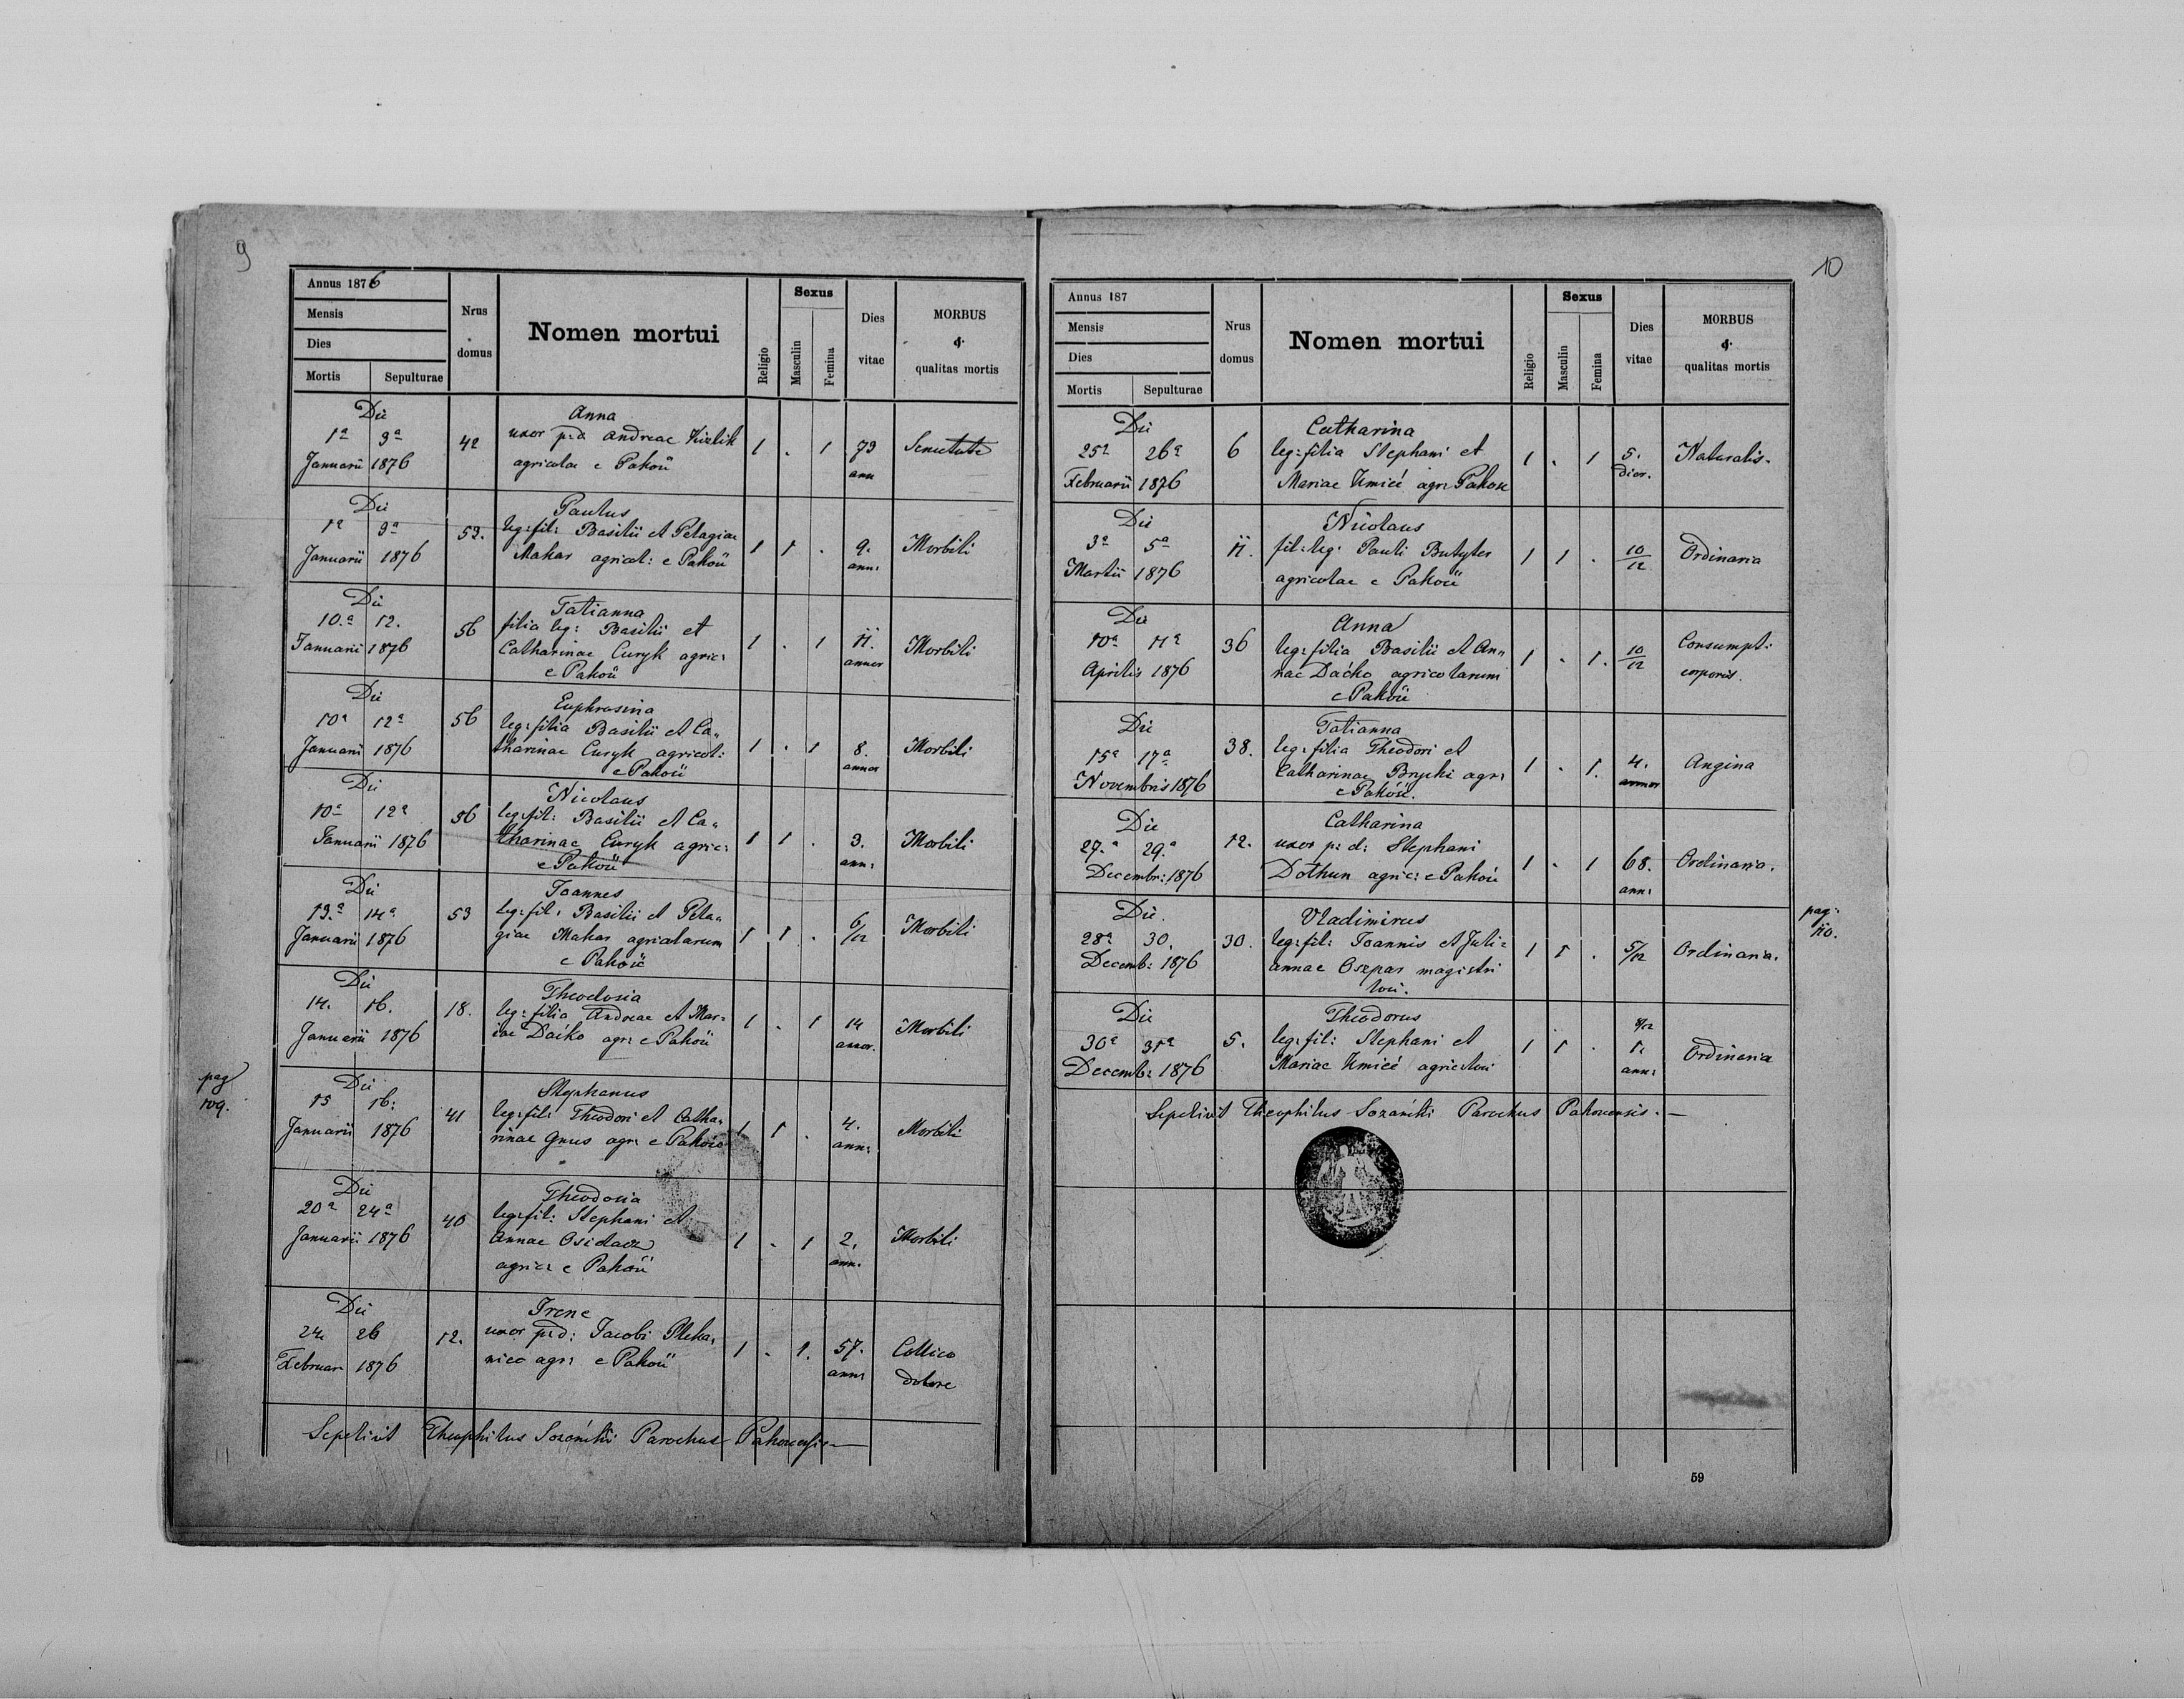 9
Annus 1876
Mensis
Dies
Mortis Sepulturae
Nrus domus
Nomen mortui
Religio
Sexus
Masculin
Femina
Dies vitae
MORBUS
&
qualitas mortis
Die Anna
1a 3a 42 uxor p: d: Andreae 1 . 1 73 Senectute
Januarii 1876 agricolae e Pakoü ann
Die Paulus
1a 3a 53. leg: fil: Basilii et Pelagiae 1 1 . 9. Morbili
Januarii 1876 Makar agricol: e Pakoü ann:
Die Tatianna
10.a 12. 56 filia leg: Basilii et 1 . 1 11. Morbili
Januarii 1876 Catharinae Curyk agric: annor
e Pakoü
Die Euphrosina
10a 12a 56 leg: filia Basilii et Ca„
Januarii 1876 tharinae Curyk agricol: 1 . 1 8. Morbili
e Pakoü annor
Die Nicolaus
10a 12a 56 leg: fil: Basilii et Ca„
Januarii 1876 tharinae Curyk agric: 1 1 . 3. Morbili
e Pakoü ann:
Die Joannes
13.a 14a 53 leg: fil: Basilii et Pela„ 6/12
Januarii 1876 giae Makar agricolarum 1 1 . Morbili
e Pakoü
Die Theodosia
14. 16. 18. leg: filia Andreae et Mar= 1 . 1 14 Morbili
Januarii 1876 iae Daćko agr: e Pakoü annor.
pag
109.
Die Stephanus
15 16: 41 leg: fil: Theodori et Catha, 1 1 . 4. Morbili
Januarii 1876 rinae Gnus agr: e Pakoü ann:
Die Theodosia
20a 24a 40 leg: fil: Stephani et
Januarii 1876 Annae Osidacz 1 . 1 2. Morbili
agric: e Pakoü ann.
Die Irene
24 26 12. uxor p: d: Jacobi Pleka, 1 . 1. 57. Collico
Februar 1876 nico agr: e Pakoü ann: dolore
Sepelivit Theophilus Sozański Parochus Pakovensis
10
Annus 187
Mensis
Dies
Mortis Sepulturae
Nrus domus
Nomen mortui
Religio
Sexus
Masculin
Femina
Dies vitae
MORBUS
&
qualitas mortis
Die Catharina
25a 26a 6 leg: filia Stephani et 1 . 1 5. Naturalis.
Februarii 1876 Mariae Kmicć agr: Pakoü dier.
Die Nicolaus
3a 5a 11. fil: leg: Pauli Butyter 1 1 . 10/12 Ordinaria
Martii 1876 agricolae e Pakoü
Die Anna
10a 11a 36 leg: filia Basilii et An„ 1 . 1. 10/12 Consumpt:
Aprilis 1876 nae Daćko agricolarum corporis.
e Pakoü
Die Tatianna
15a 17a 38. leg: filia Theodori et
Novembris 1876 Catharinae Brycki agr: 1 . 1. 4. Angina
e Pakoü. annor
Die Catharina
27.a 29.a 12. uxor p: d: Stephani
Decembr: 1876 Dothun agric: e Pakoü 1 . 1 68. Ordinaria.
ann:
pag:
110.
Die. Vladimirus
28a 30. 30. leg: fil: Joannis et Juli= 1 1 . 5/12 Ordinaria.
Decemb: 1876 annae Oszpar magistri
loci.
Die Theodorus
30a 31a 5. leg: fil: Stephani et 1 1 . 1. Ordinaria
Decemb: 1876 Mariae Kmicć agric: loci ann:
Sepelivit Theophilus Sozański Parochus Pakovensis. —
59